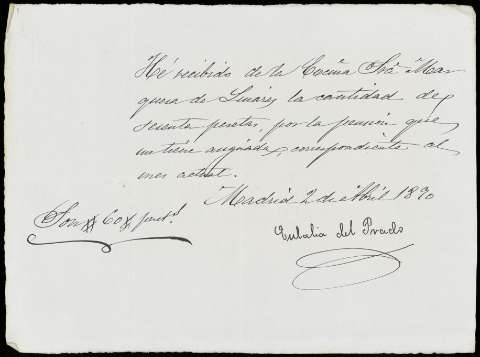 Hé recibido de la Excma Srâ Mar-
quesa de Linares la cantidad de
sesenta pesetas, por la pensión que
me tiene asignada, correspondiente al
mes actual.
Madrid 2 de Abril 1890
Son # 60 # pset.s
Eulalia del Prado